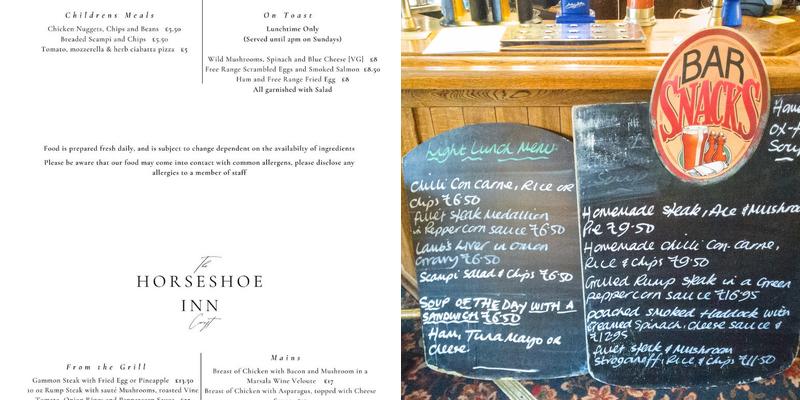 Childrens Meals
Chicken Nuggets, Chips and Beans £5.50
Breaded Scampi and Chips £5.50
Tomato, mozzerella & herb ciabatta pizza £5
On Toast
Lunchtime Only
(Served until 2pm on Sundays)
Wild Mushrooms, Spinach and Blue Cheese [VG] £8
Free Range Scrambled Eggs and Smoked Salmon £8.50
Ham and Free Range Fried Egg £8
All garnished with Salad
Food is prepared fresh daily, and is subject to change dependent on the availability of ingredients
Please be aware that our food may come into contact with common allergens, please disclose any
allergies to a member of staff
The
HORSESHOE
INN
From the Grill
Gammon Steak with Fried Egg or Pineapple £13.50
10 oz Rump Steak with sauté Mushrooms, roasted Vine
Mains
Breast of Chicken with Bacon and Mushroom in a
Marsala Wine Veloute £17
Breast of Chicken with Asparagus, topped with Cheese
BAR
SNACKS
Light Lunch Menu
Chilli Con carne, Rice or
Chips £6.50
Fillet steak Medallion
in Peppercorn sauce £6.50
Lamb's Liver in Onion
Gravy £6.50
Scampi Salad & Chips £6.50
SOUP OF THE DAY WITH A
SANDWICH £6.50
Ham, Tuna Mayo or
Cheese.
Homemade steak, Ale & Mushroo
Pie £9.50
Homemade chilli con-carne,
Rice & Chips £9.50
Grilled Rump steak in a Green
peppercorn sauce £16.95
poached smoked Haddock with
creamed Spinach, cheese sauce &
£12.95
fillet steak & Mushroom
Stroganoff, Rice & Chips £11.50